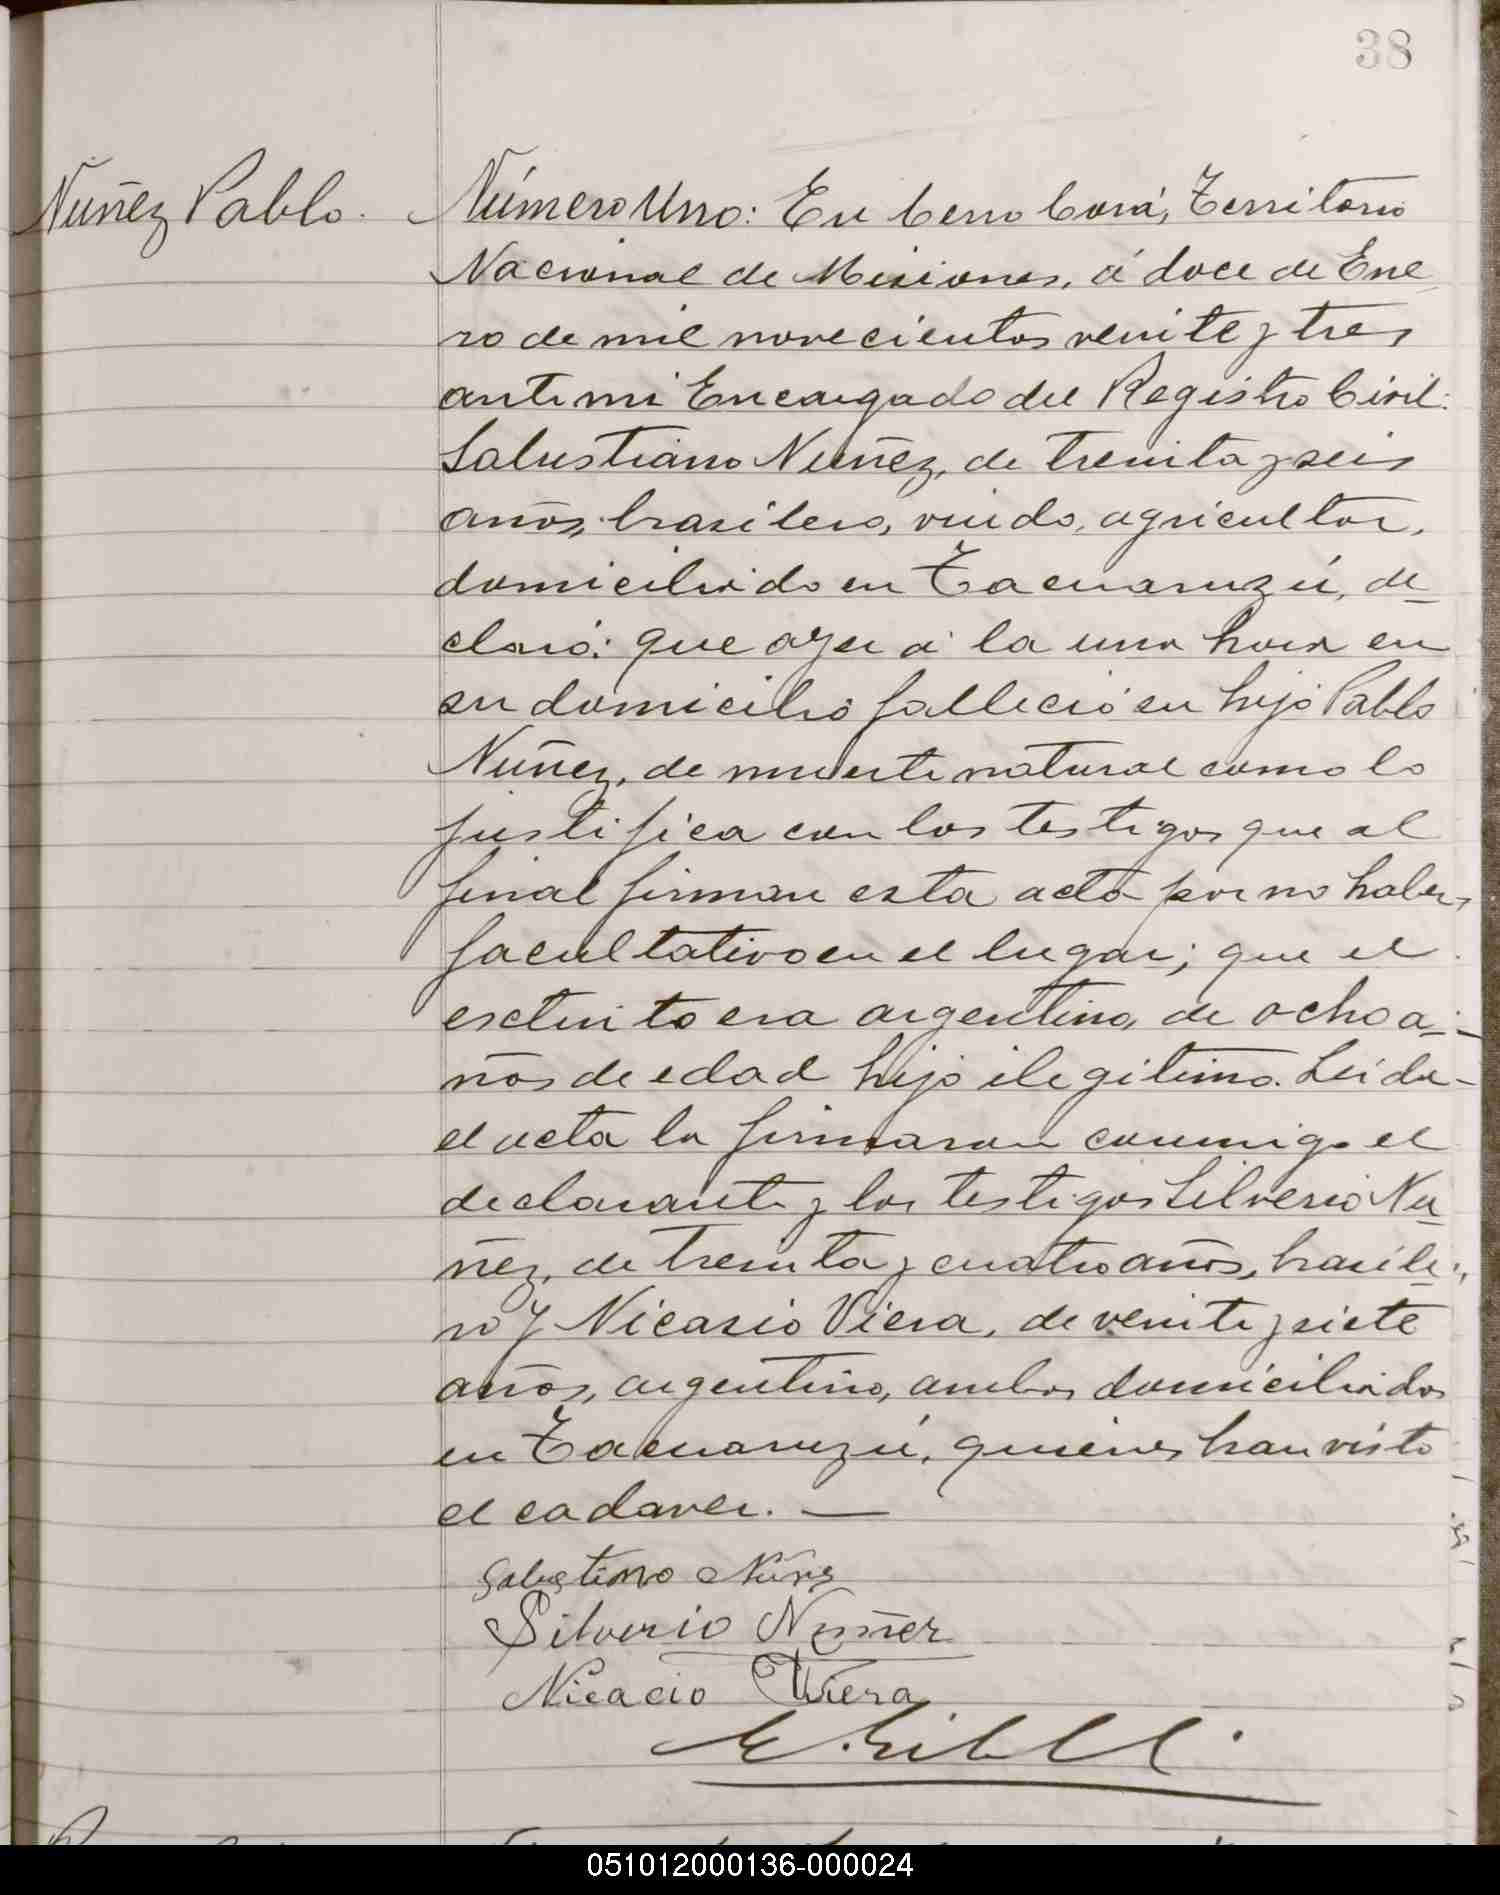 38
Nuñez Pablo.
Número Uno: En Cerro Corá, Territorio
Nacional de Misiones, á doce de Ene
ro de mil novecientos veinte y tres
ante mi Encargado del Registro Civil:
Salustiano Nuñez, de treinta y seis
años, brasilero, viudo, agricultor,
domiciliado en Tacuaruzú, de_
claró: que ayer á la una hora en
su domicilio falleció su hijo Pablo
Nuñez, de muerte natural como lo
justifica con los testigos que al
final firman esta acta por no haber
facultativo en el lugar; que el
extinto era argentino, de ocho a_
ños de edad hijo ilegitimo. Leida
el acta la firmaron conmigo el
declarante y los testigos Silverio Nu_
ñez, de treinta y cuatro años, brasile_
ro y Nicasio Viera, de veinte y siete
años, argentino, ambos domiciliados
en Tacuaruzú, quienes han visto
el cadaver. —
Salustiano Núñez
Silverio Nuñez
Nicacio Viera
051012000136-000024